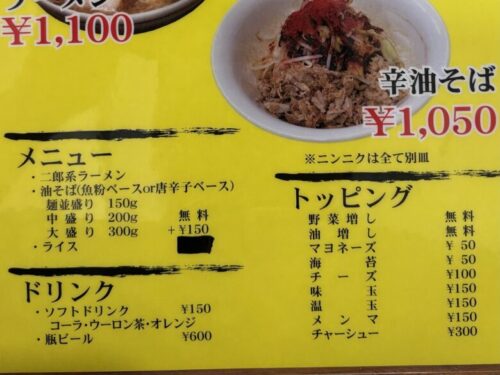 ラーメン
¥1,100
辛油そば
¥1,050
※ニンニクは全て別皿
メニュー
・二郎系ラーメン
・油そば(魚粉ベースor唐辛子ベース)
麺並盛り 150g
中盛り 200g 無料
大盛り 300g +¥150
・ライス
ドリンク
・ソフトドリンク ¥150
コーラ・ウーロン茶・オレンジ
・瓶ビール ¥600
トッピング
野菜増し 無料
油増し 無料
マヨネーズ ¥50
海苔 ¥50
チーズ ¥100
味玉 ¥150
温玉 ¥150
メンマ ¥150
チャーシュー ¥300